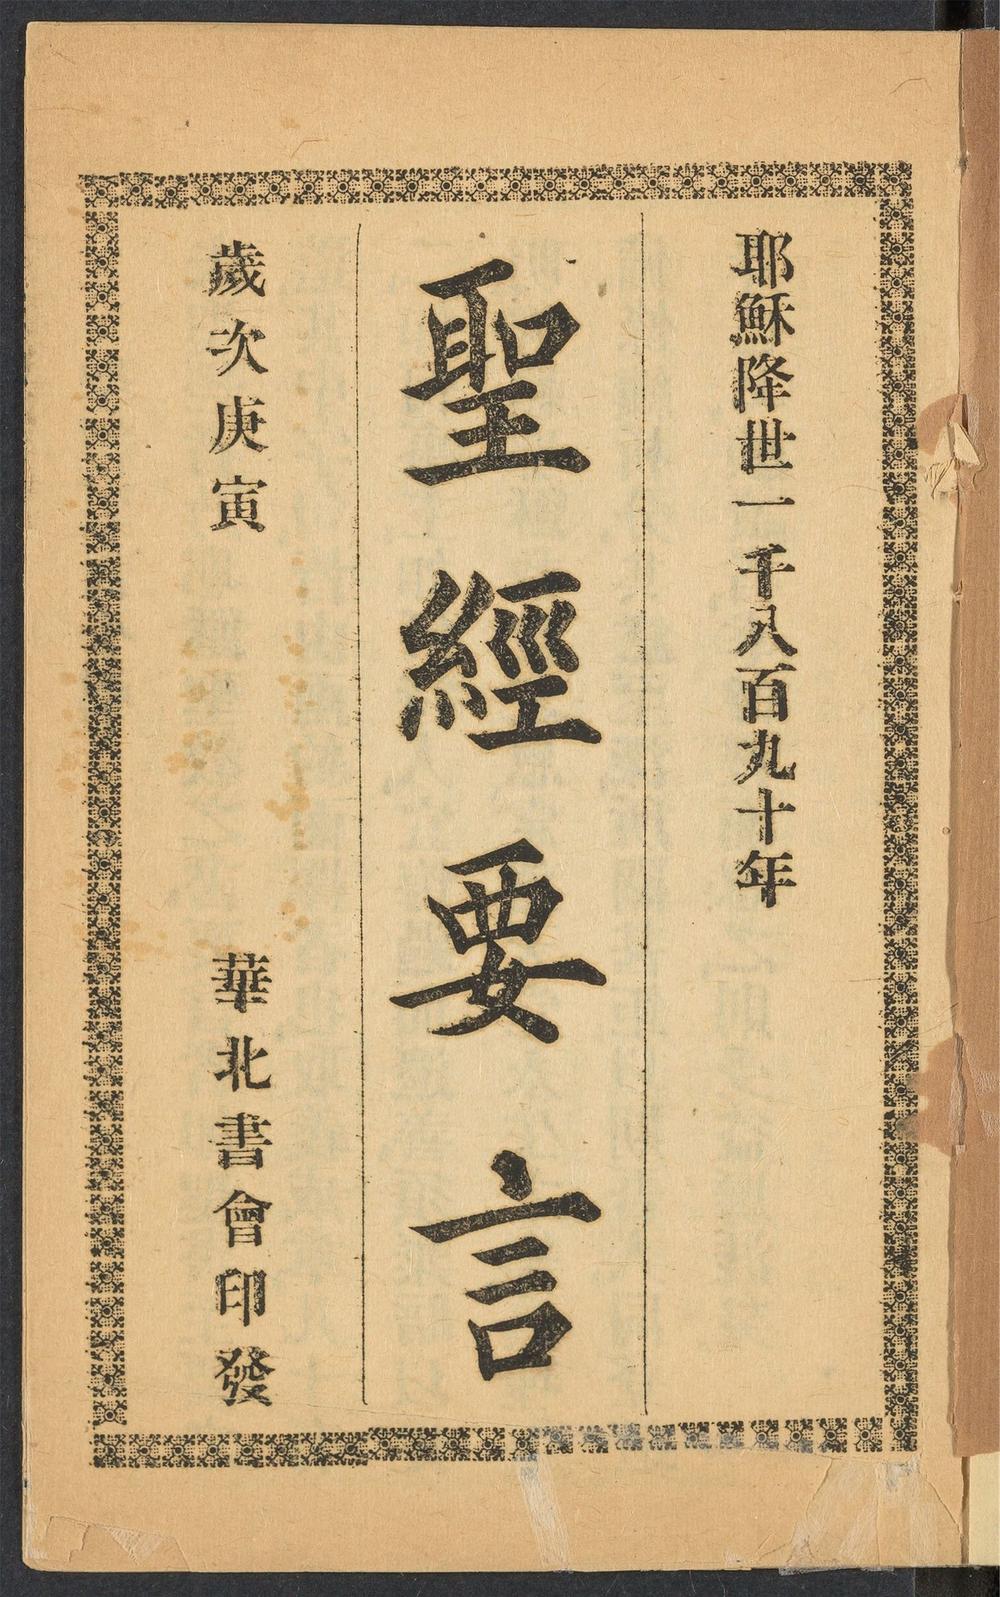 耶穌降世一千八百九十年
聖經要言
歲次庚寅
華北書會印發